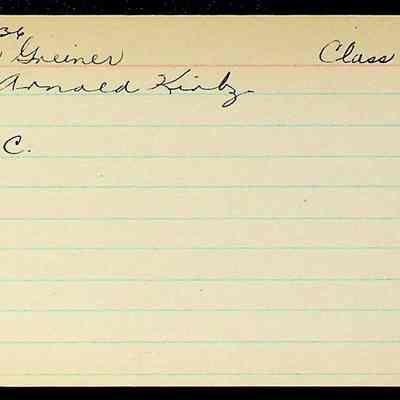 36
Greiner Class
Arnold Kirby
C.